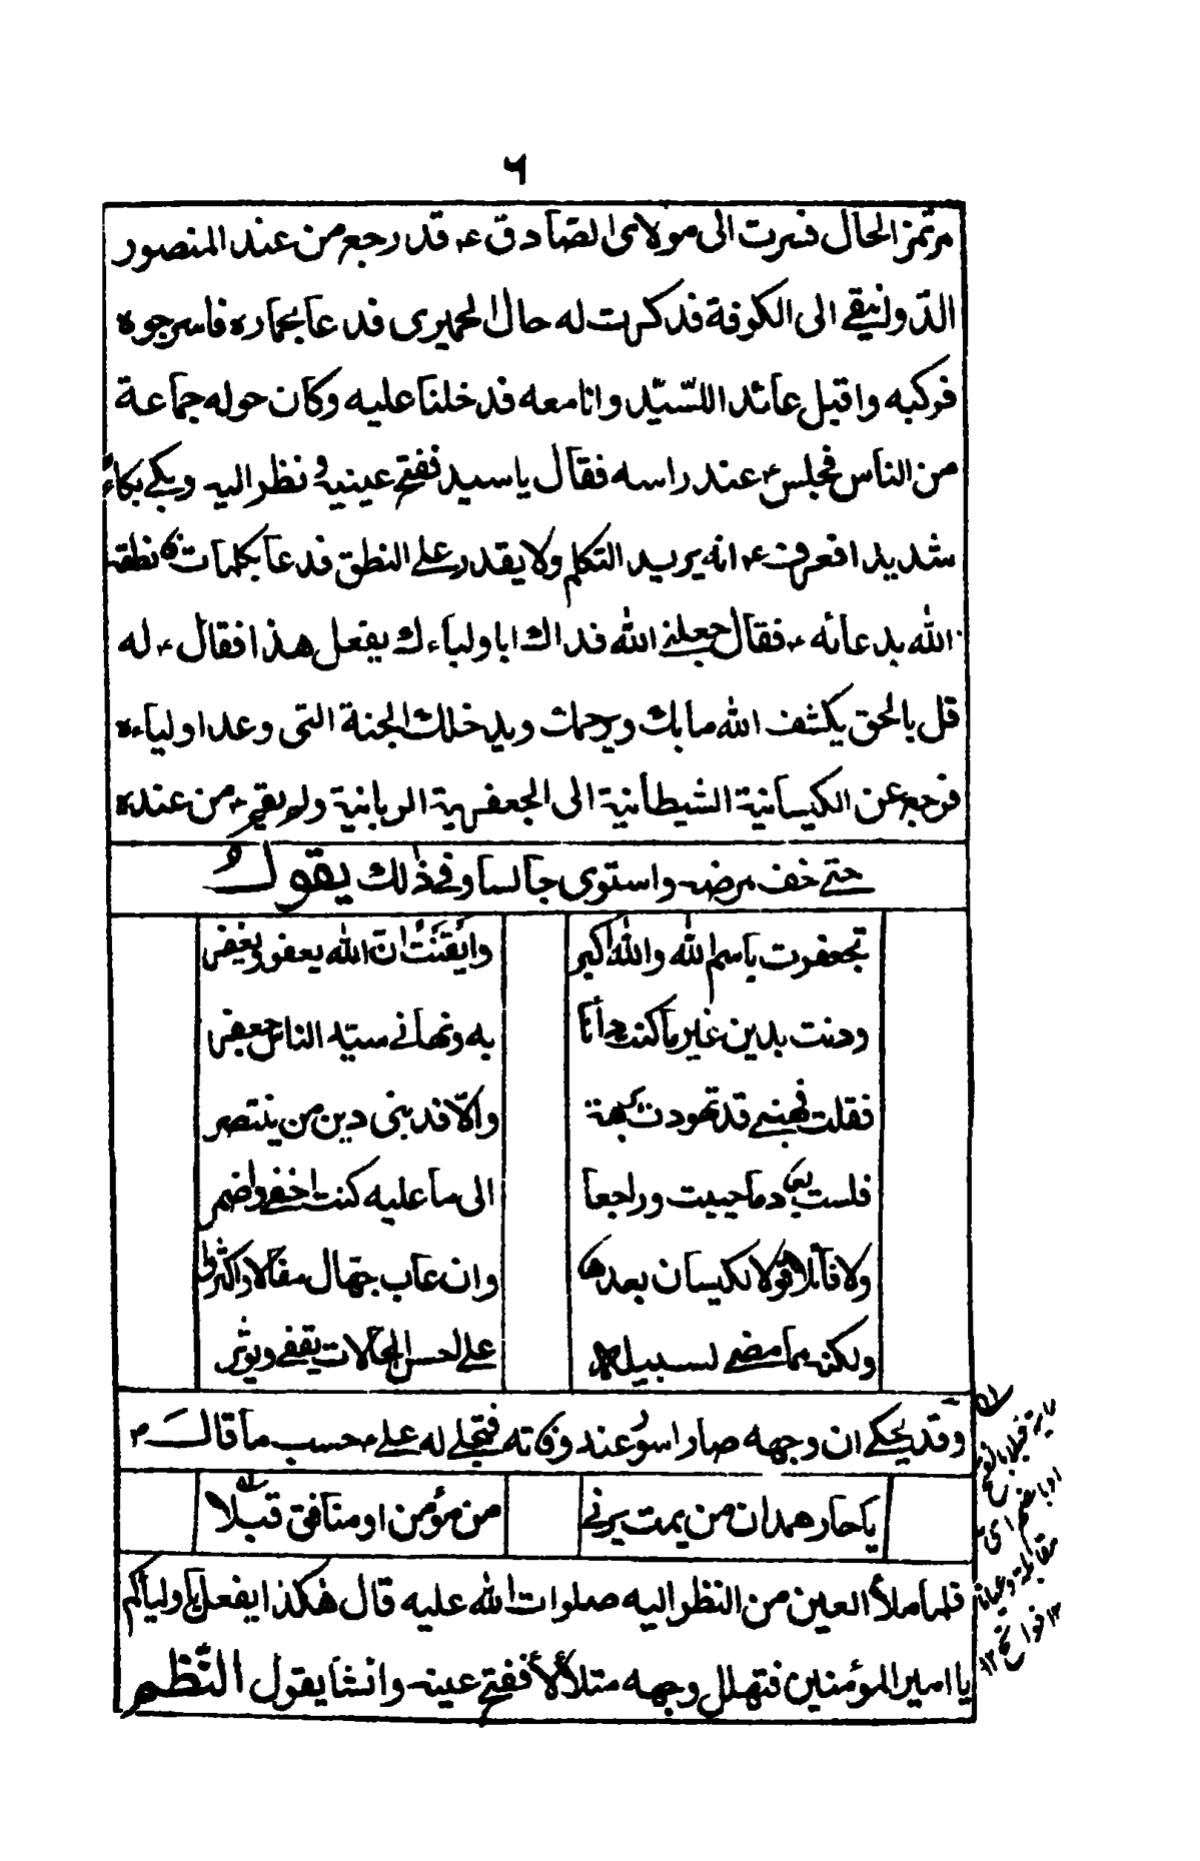 ٦
الحال فسرت الى مولاى الصادق ع قد رجع من عند المنصور
الدوانيقے الى الكوفة فذكرت له حال الحميرى فدعا بحماره فاسرجوه
فركبه واقبل عائد اللسّيّد وانا معه فدخلنا عليه وكان حوله جماعة
من الناس فجلس ع عند راسه فقال يا سيد ففتح عينيه و نظر اليه وبكے بكاءً
شديدا فعرف ع انه يريد التكلم ولا يقدر علے النطق فدعا بكلمات فانطقه
الله بدعائه ع فقال جعلنے الله فداك اباولياءك يفعل هذا فقال ع له
قل بالحق يكشف الله ما بك ويرحمك ويدخلك الجنة التى وعد اولياءه
فرجع عن الكيسانية الشيطانية الى الجعفرية الربانية ولم يقم ع من عنده
حتے خف مرضه واستوى جالسا وفى ذلك يقول
تجعفرت باسم الله والله اكبر وايقنت ان الله يعفو ويغفر
ودنت بدين غير ما كنت دائنا به ونهانے سيّد الناس جعفر
فقلت فهبنے قد تهودت برهة والّا فدينى دين من ينتصر
فلست دما حييت وراجعا الى ما عليه كنت اخفے واضمر
ولا قائلا قولا لكيسان بعدها وان عاب جهال مقالا واكثروا
ولكنه مما مضے لسبيله علے احسن الحالات يقفے ويوثر
وقد يحكے ان وجهه صار اسود عند وفاته فتجلے له علے ع حسب ما قال ع
يا حار همدان من يمت يرنے من مؤمن او منافق قبلا
فلما ملأ العين من النظر اليه صلوات الله عليه قال هكذا يفعل باوليائكم
يا امير المؤمنين فتهلل وجهه متلألأ ففتح عينه وانشا يقول النّظم